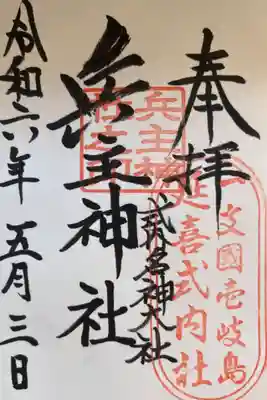 奉拝
兵主神社
式内名神大社
令和六年五月三日
延喜式内社
國壱岐島
兵主神